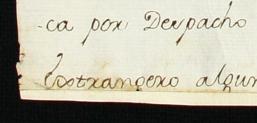 -ca por Despacho
Extrangero algun